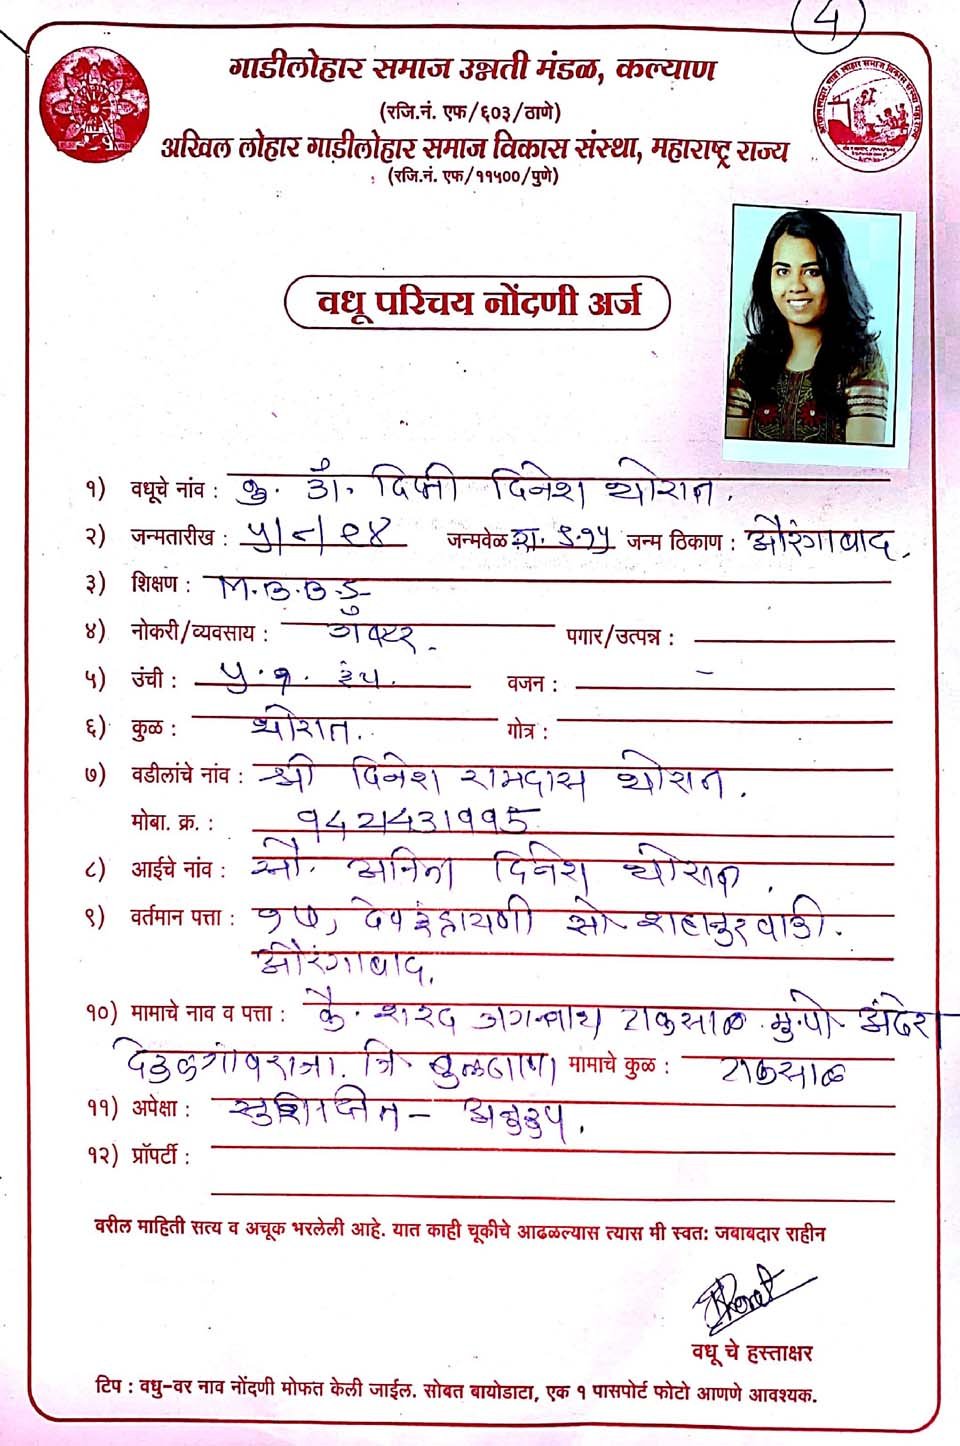 4
गाडीलोहार समाज उन्नती मंडळ, कल्याण
(रजि.नं. एफ/६०३/ठाणे)
अखिल लोहार गाडीलोहार समाज विकास संस्था, महाराष्ट्र राज्य
(रजि.नं. एफ/११५००/पुणे)
वधू परिचय नोंदणी अर्ज
१) वधूचे नांव : कु. डॉ. दिप्ती दिनेश थोरात.
२) जन्मतारीख : ५/८/९४ जन्मवेळ रा. ९.१५ जन्म ठिकाण : औरंगाबाद.
३) शिक्षण : M.B.B.S
४) नोकरी/व्यवसाय : डॉक्टर. पगार/उत्पन्न :
५) उंची : ५.१. इंच. वजन : -
६) कुळ : थोरात. गोत्र :
७) वडीलांचे नांव : श्री दिनेश रामदास थोरात.
मोबा. क्र. : 9421431995
८) आईचे नांव : सौ. अनिता दिनेश थोरात.
९) वर्तमान पत्ता : १७, देवइंद्रायणी सो. शहानुरवाडी.
औरंगाबाद.
१०) मामाचे नाव व पत्ता : कै. शरद जगन्नाथ टाकसाळ मु.पो. अंढेरा
देऊळगांवराजा. जि बुलढाणा मामाचे कुळ : टाकसाळ
११) अपेक्षा : सुशिक्षीत - अनुरुप.
१२) प्रॉपर्टी :
वरील माहिती सत्य व अचूक भरलेली आहे. यात काही चूकीचे आढळल्यास त्यास मी स्वत: जबाबदार राहीन
वधू चे हस्ताक्षर
टिप : वधु-वर नाव नोंदणी मोफत केली जाईल. सोबत बायोडाटा, एक १ पासपोर्ट फोटो आणणे आवश्यक.